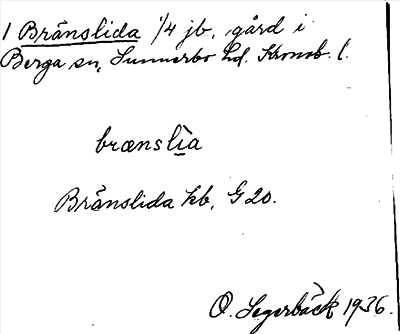 1 Brånslida 1/4 jb, gård i
Berga sn, Sunnerbo hd. Kronob. l.
brænslìa
Brånslida kb, G 20.
O. Segerbäck 1936.